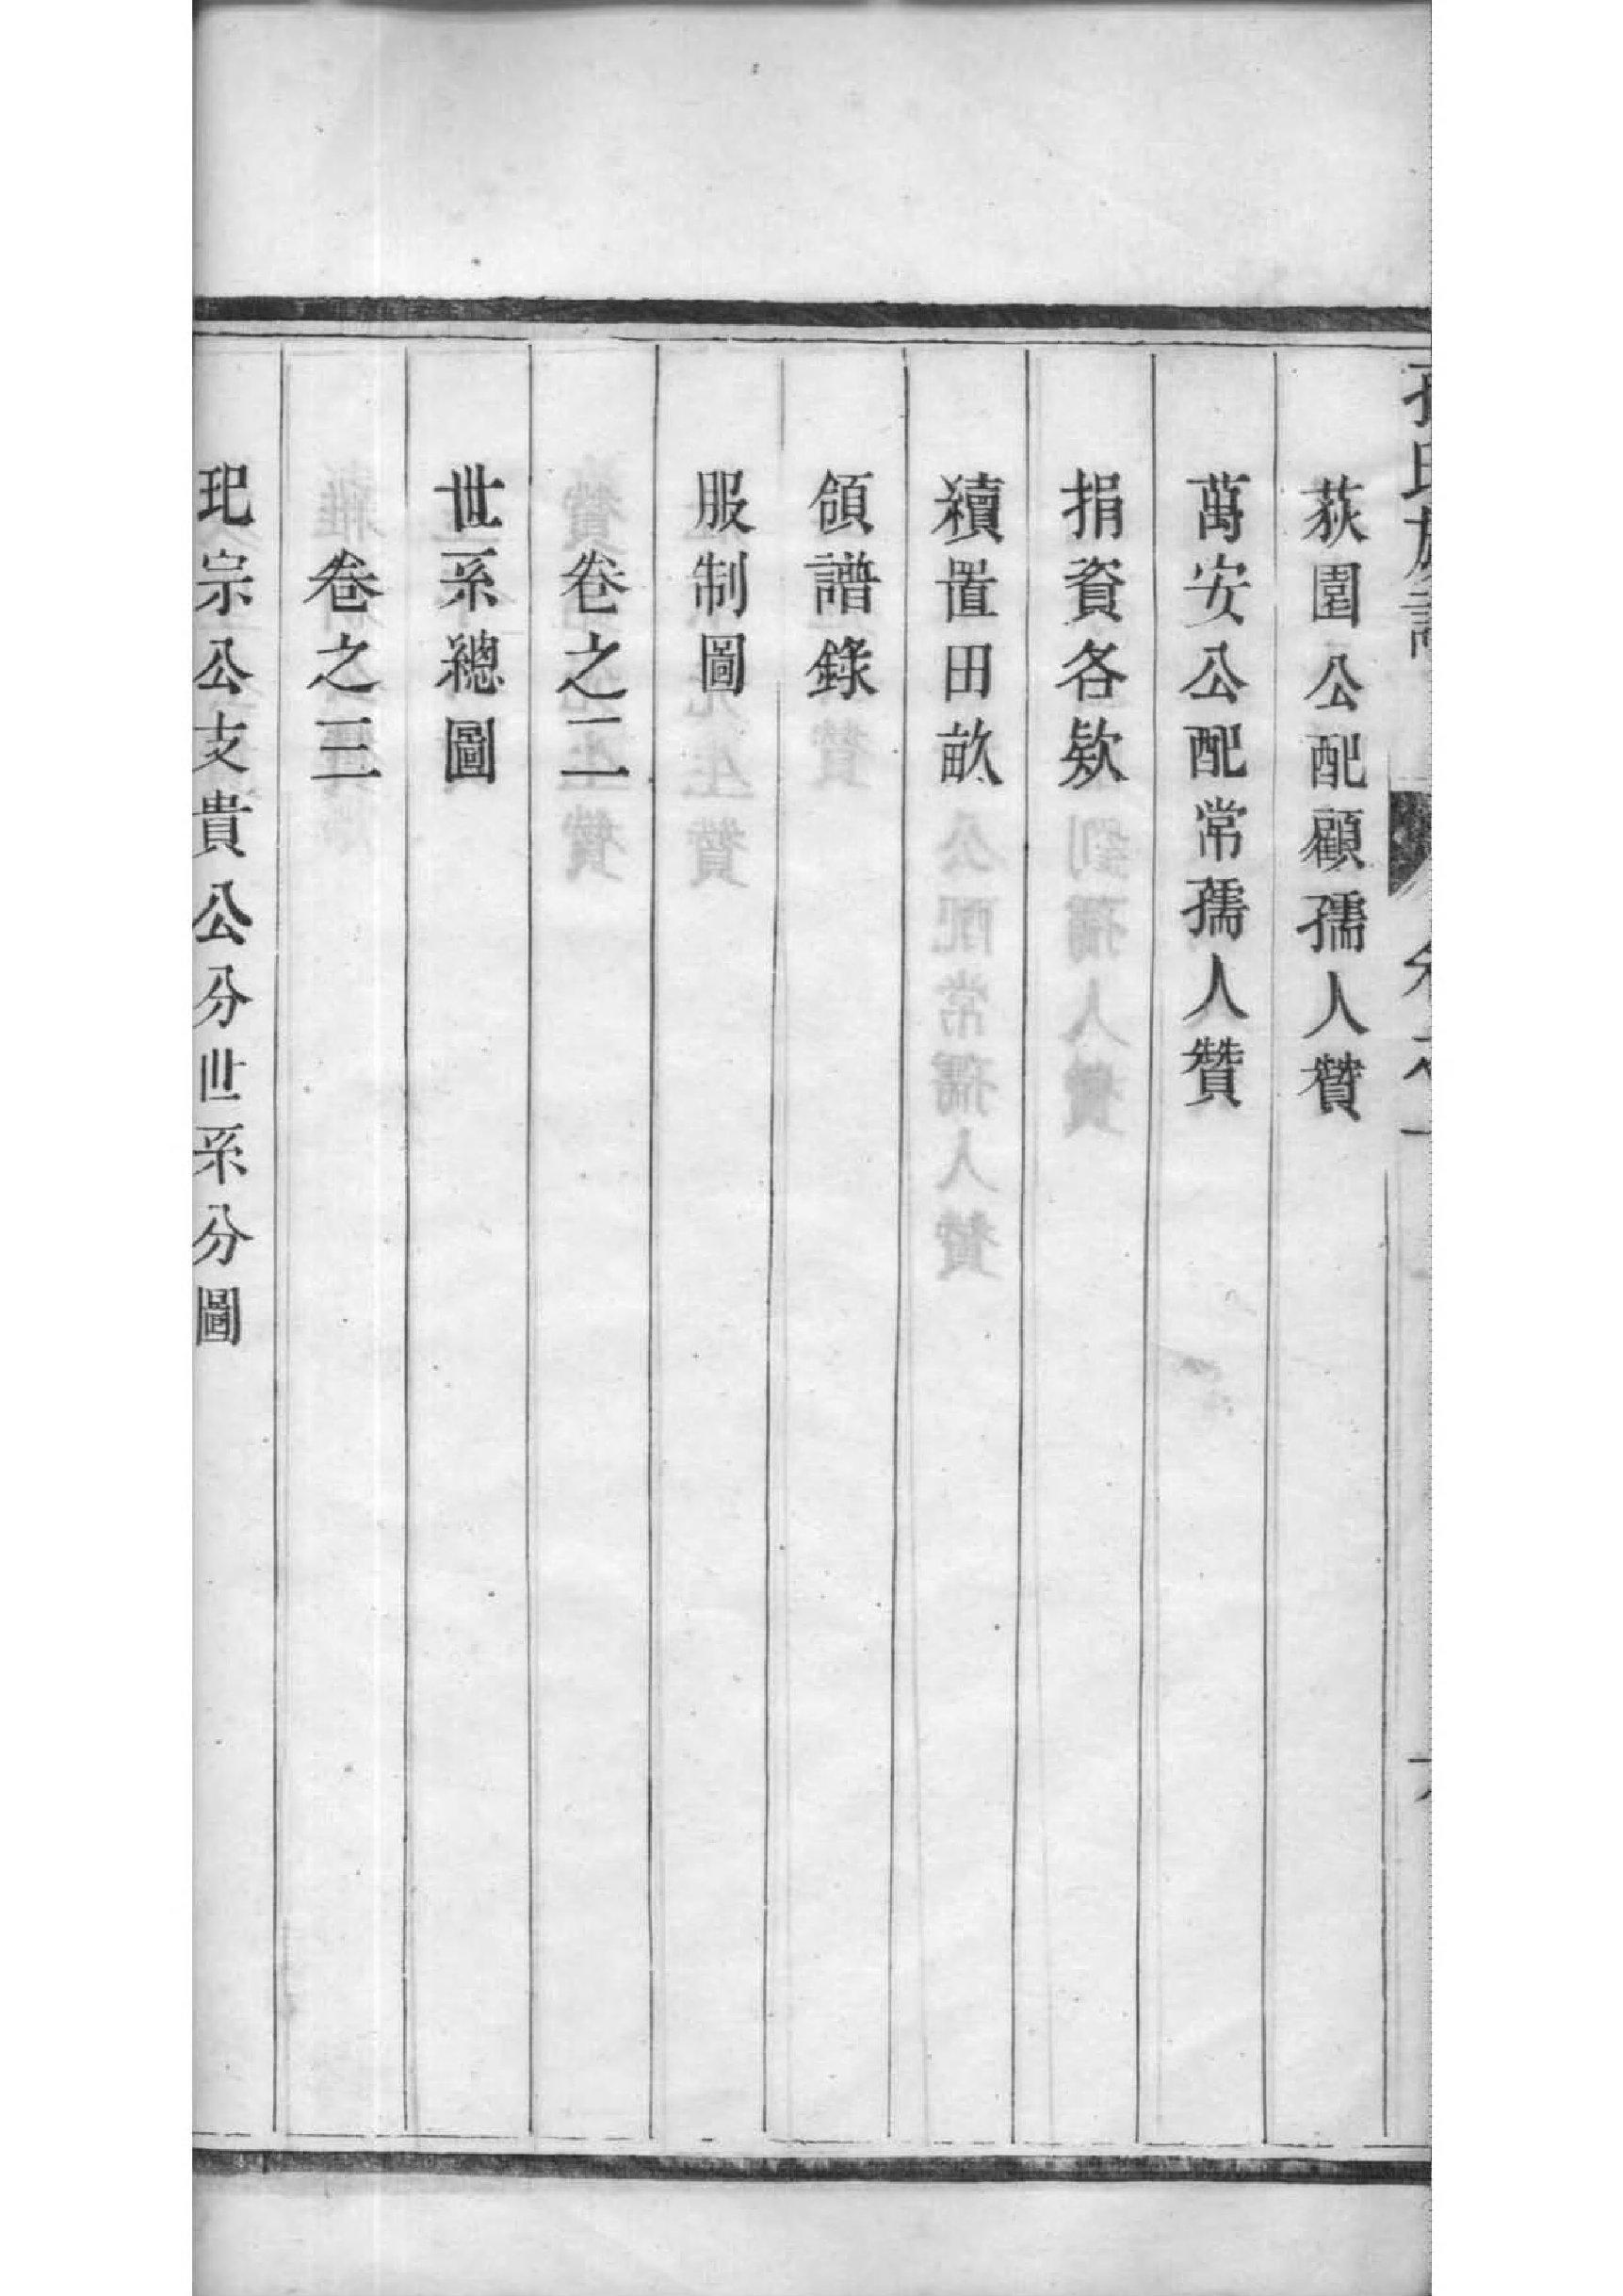 孫氏族譜 卷之一 六
荻園公配顧孺人贊
萬安公配常孺人贊
捐資各欵
續置田畝
領譜錄
服制圖
卷之二
世系總圖
卷之三
玘宗公支貴公分世系分圖